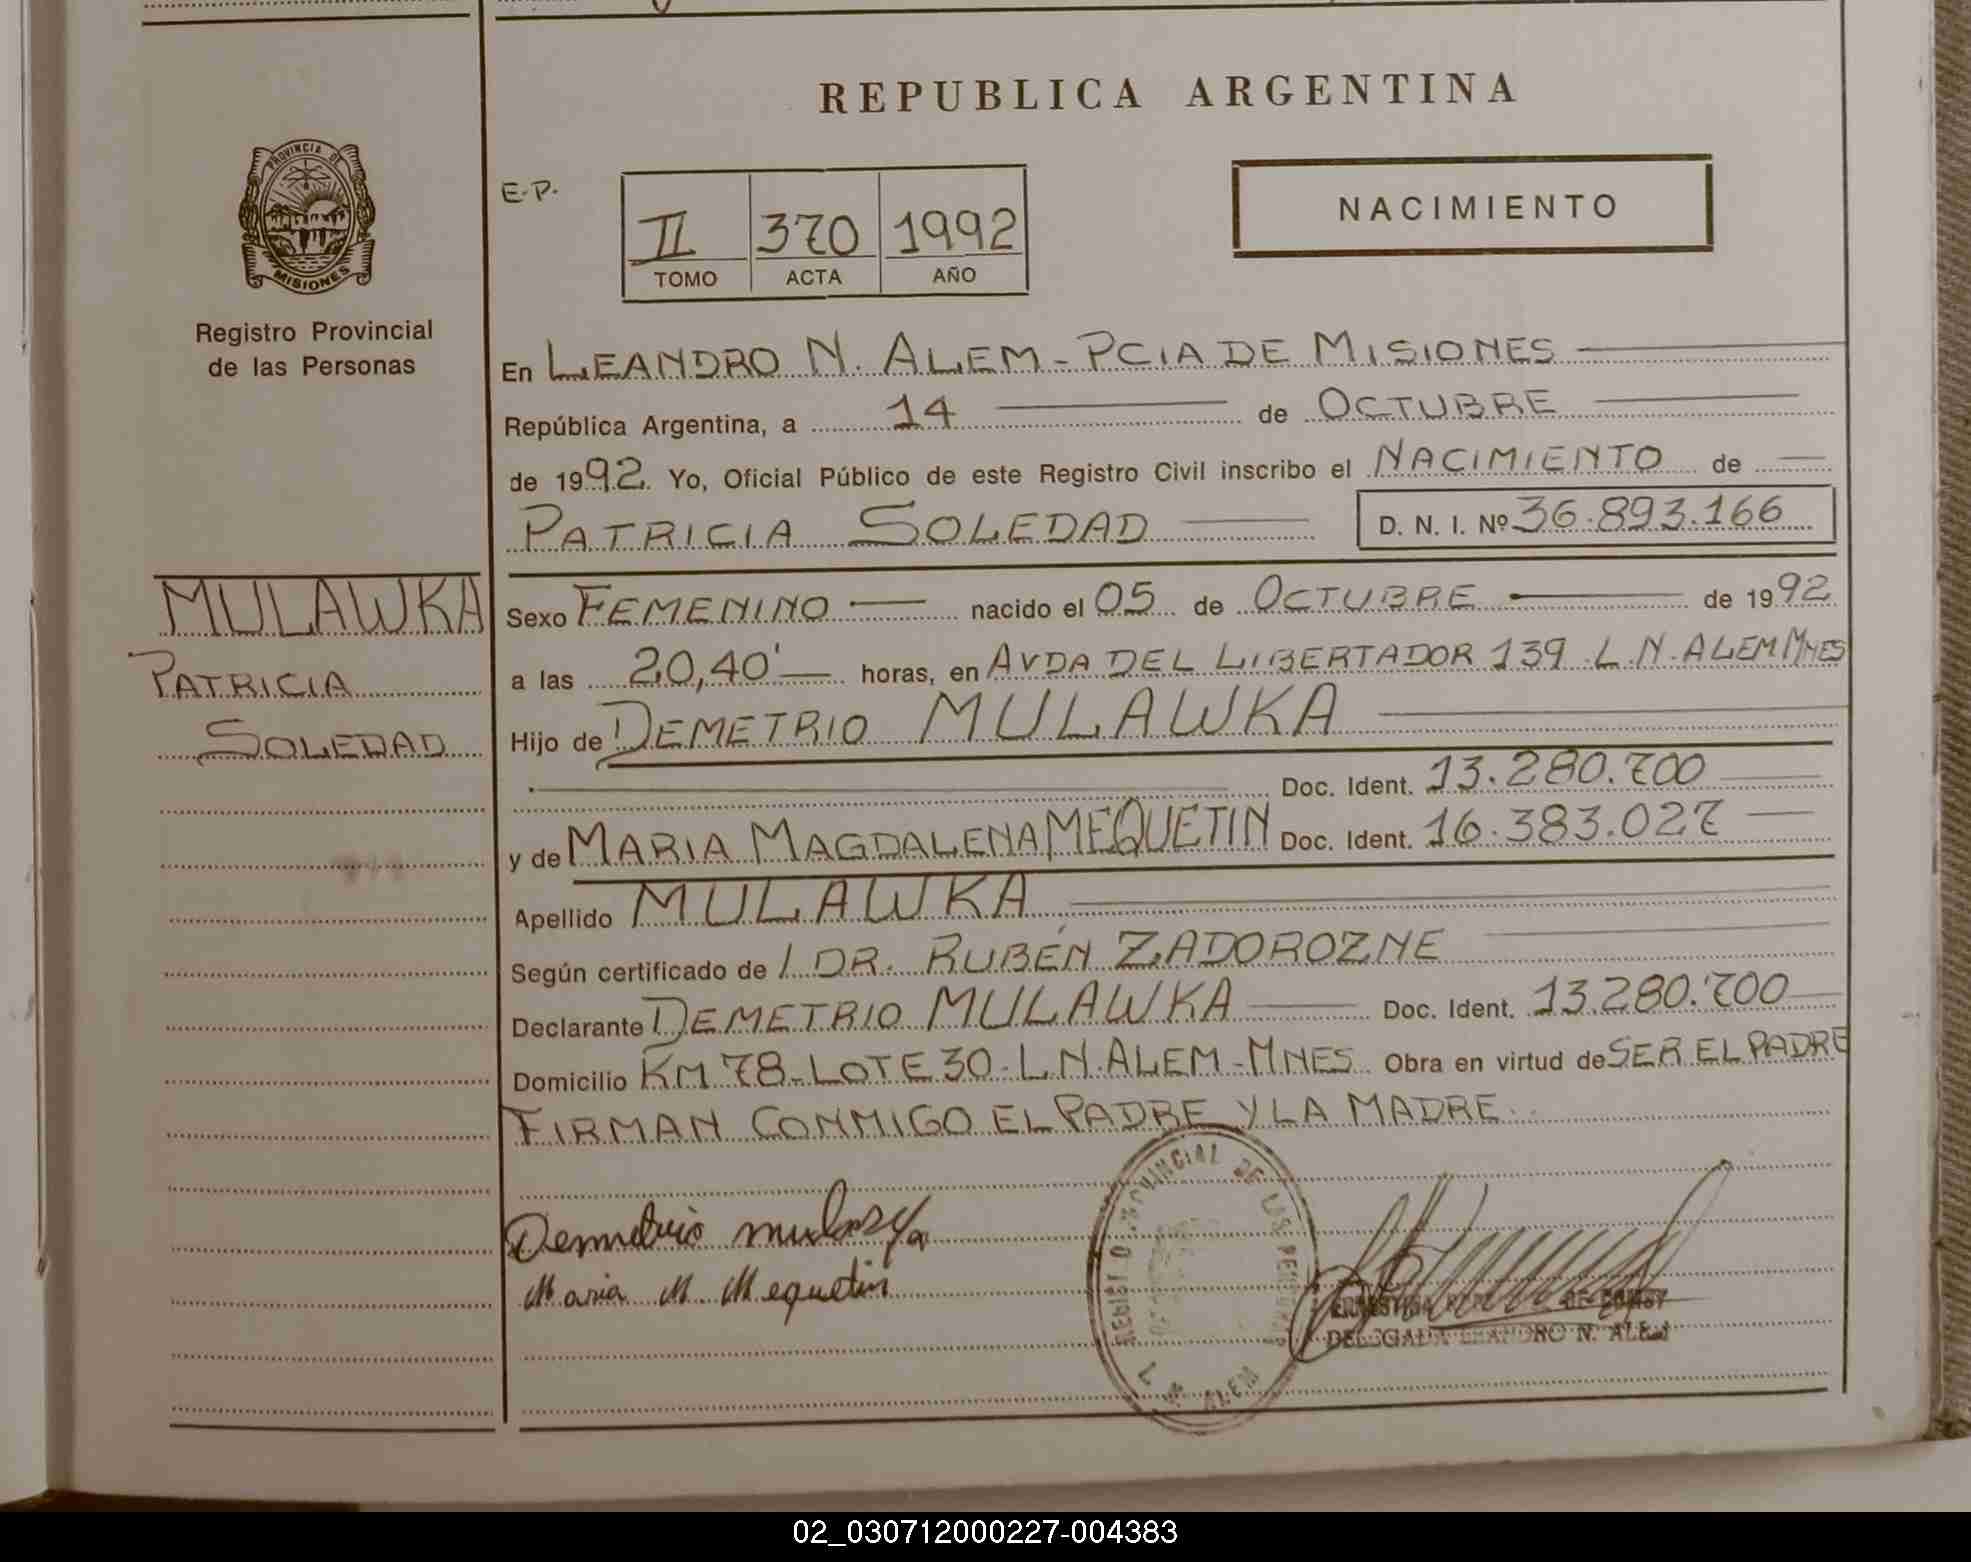 REPUBLICA ARGENTINA
PROVINCIA DE
MISIONES
Registro Provincial
de las Personas
E.P.
II 370 1992
TOMO ACTA AÑO
NACIMIENTO
En LEANDRO N. ALEM - PCIA DE MISIONES
República Argentina, a 14 de OCTUBRE
de 1992. Yo, Oficial Público de este Registro Civil inscribo el NACIMIENTO de
PATRICIA SOLEDAD D. N. I. Nº 36.893.166
MULAWKA
PATRICIA
SOLEDAD
Sexo FEMENINO nacido el 05 de OCTUBRE de 1992
a las 20,40' horas, en AVDA DEL LIBERTADOR 139 L.N. ALEM MNES
Hijo de DEMETRIO MULAWKA
Doc. Ident. 13.280.700
y de MARIA MAGDALENA MEQUETIN Doc. Ident. 16.383.027
Apellido MULAWKA
Según certificado de / DR. RUBÉN ZADOROZNE
Declarante DEMETRIO MULAWKA Doc. Ident. 13.280.700
Domicilio KM 78 - LOTE 30 - L.N. ALEM - MNES. Obra en virtud de SER EL PADRE
FIRMAN CONMIGO EL PADRE Y LA MADRE.
Demetrio mulawka
Maria M. Mequetin
REGISTRO PROVINCIAL DE LAS PERSONAS
L. N. ALEM
DELEGADA LEANDRO N. ALEM
02_030712000227-004383